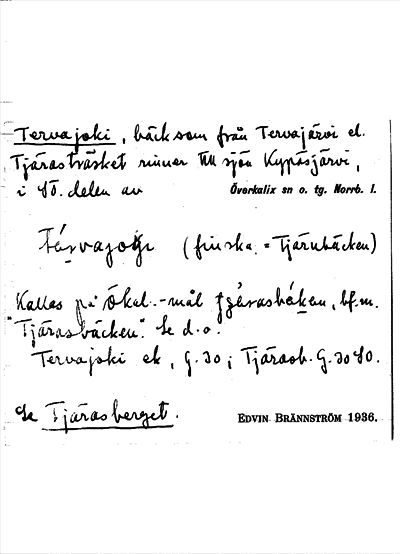 Tervajoki, bäck som från Tervajärvi el.
Tjärasträsket rinner till sjön Kypäsjärvi,
i SO. delen av Överkalix sn o. tg. Norrb. l.
(finska = Tjärubäcken)
Kallas på Ökal.-mål bf.m.
"Tjärasbäcken". Se d.o.
Tervajoki ek, G.30; Tjärasb. G.30 SO.
Se Tjärasberget.
EDVIN BRÄNNSTRÖM 1936.